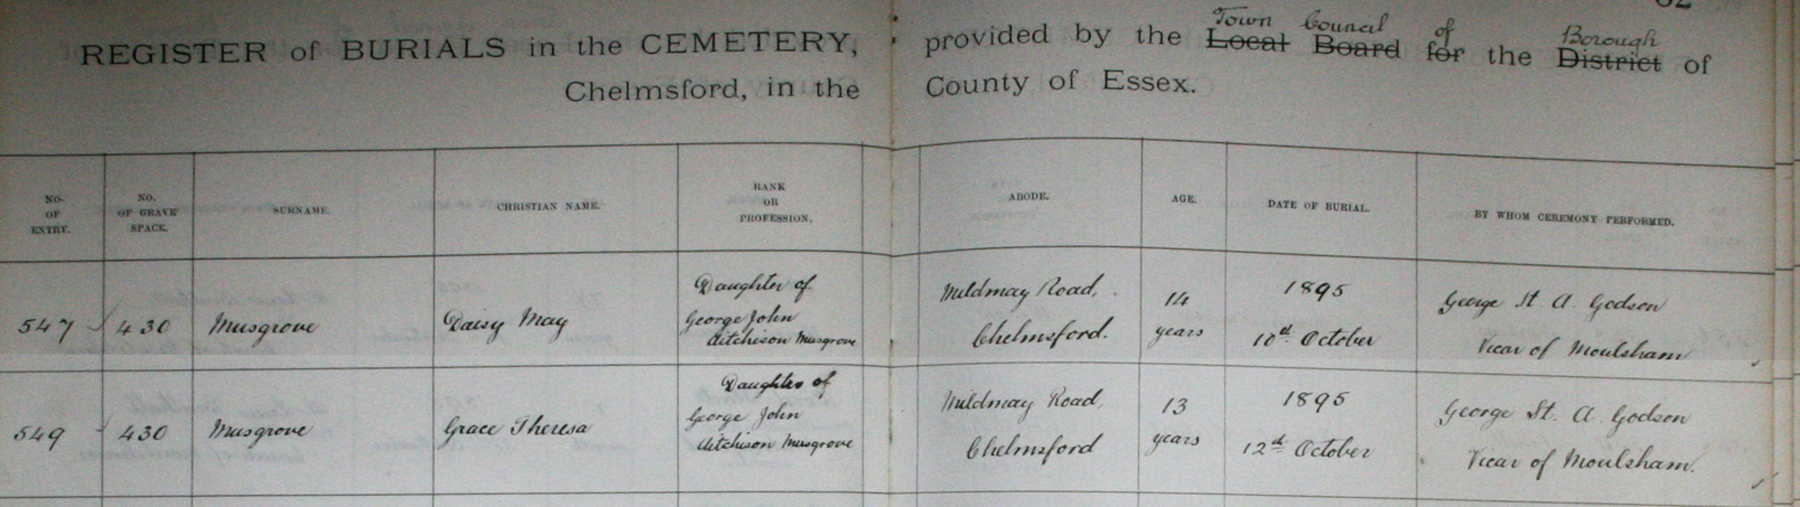 REGISTER of BURIALS in the CEMETERY, provided by the Local Board for the District of
Town Council of Borough
Chelmsford, in the County of Essex.
NO. OF ENTRY.
NO. OF GRAVE SPACE.
SURNAME.
CHRISTIAN NAME.
RANK OR PROFESSION.
ABODE.
AGE.
DATE OF BURIAL.
BY WHOM CEREMONY PERFORMED.
547
430
Musgrove
Daisy May
Daughter of
George John
Aitchison Musgrove
Mildmay Road,
Chelmsford.
14
years
1895
10th October
George St. A. Godson
Vicar of Moulsham
549
430
Musgrove
Grace Theresa
Daughter of
George John
Aitchison Musgrove
Mildmay Road,
Chelmsford
13
years
1895
12th October
George St. A Godson
Vicar of Moulsham.